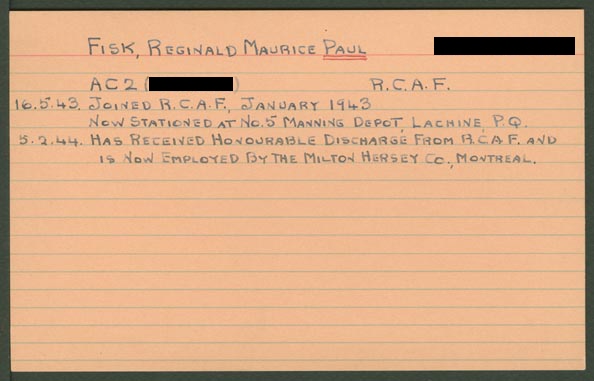 FISK, REGINALD MAURICE PAUL
AC2 ( ) R.C.A.F.
16.5.43. JOINED R.C.A.F., JANUARY 1943
NOW STATIONED AT NO.5 MANNING DEPOT, LACHINE, P.Q.
5.2.44. HAS RECEIVED HONOURABLE DISCHARGE FROM R.C.A.F. AND
IS NOW EMPLOYED BY THE MILTON HERSEY CO., MONTREAL.